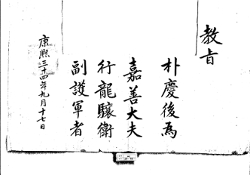 教旨
朴慶後爲
嘉善大夫
行龍驤衛
副護軍者
康熙三十四年九月十七日